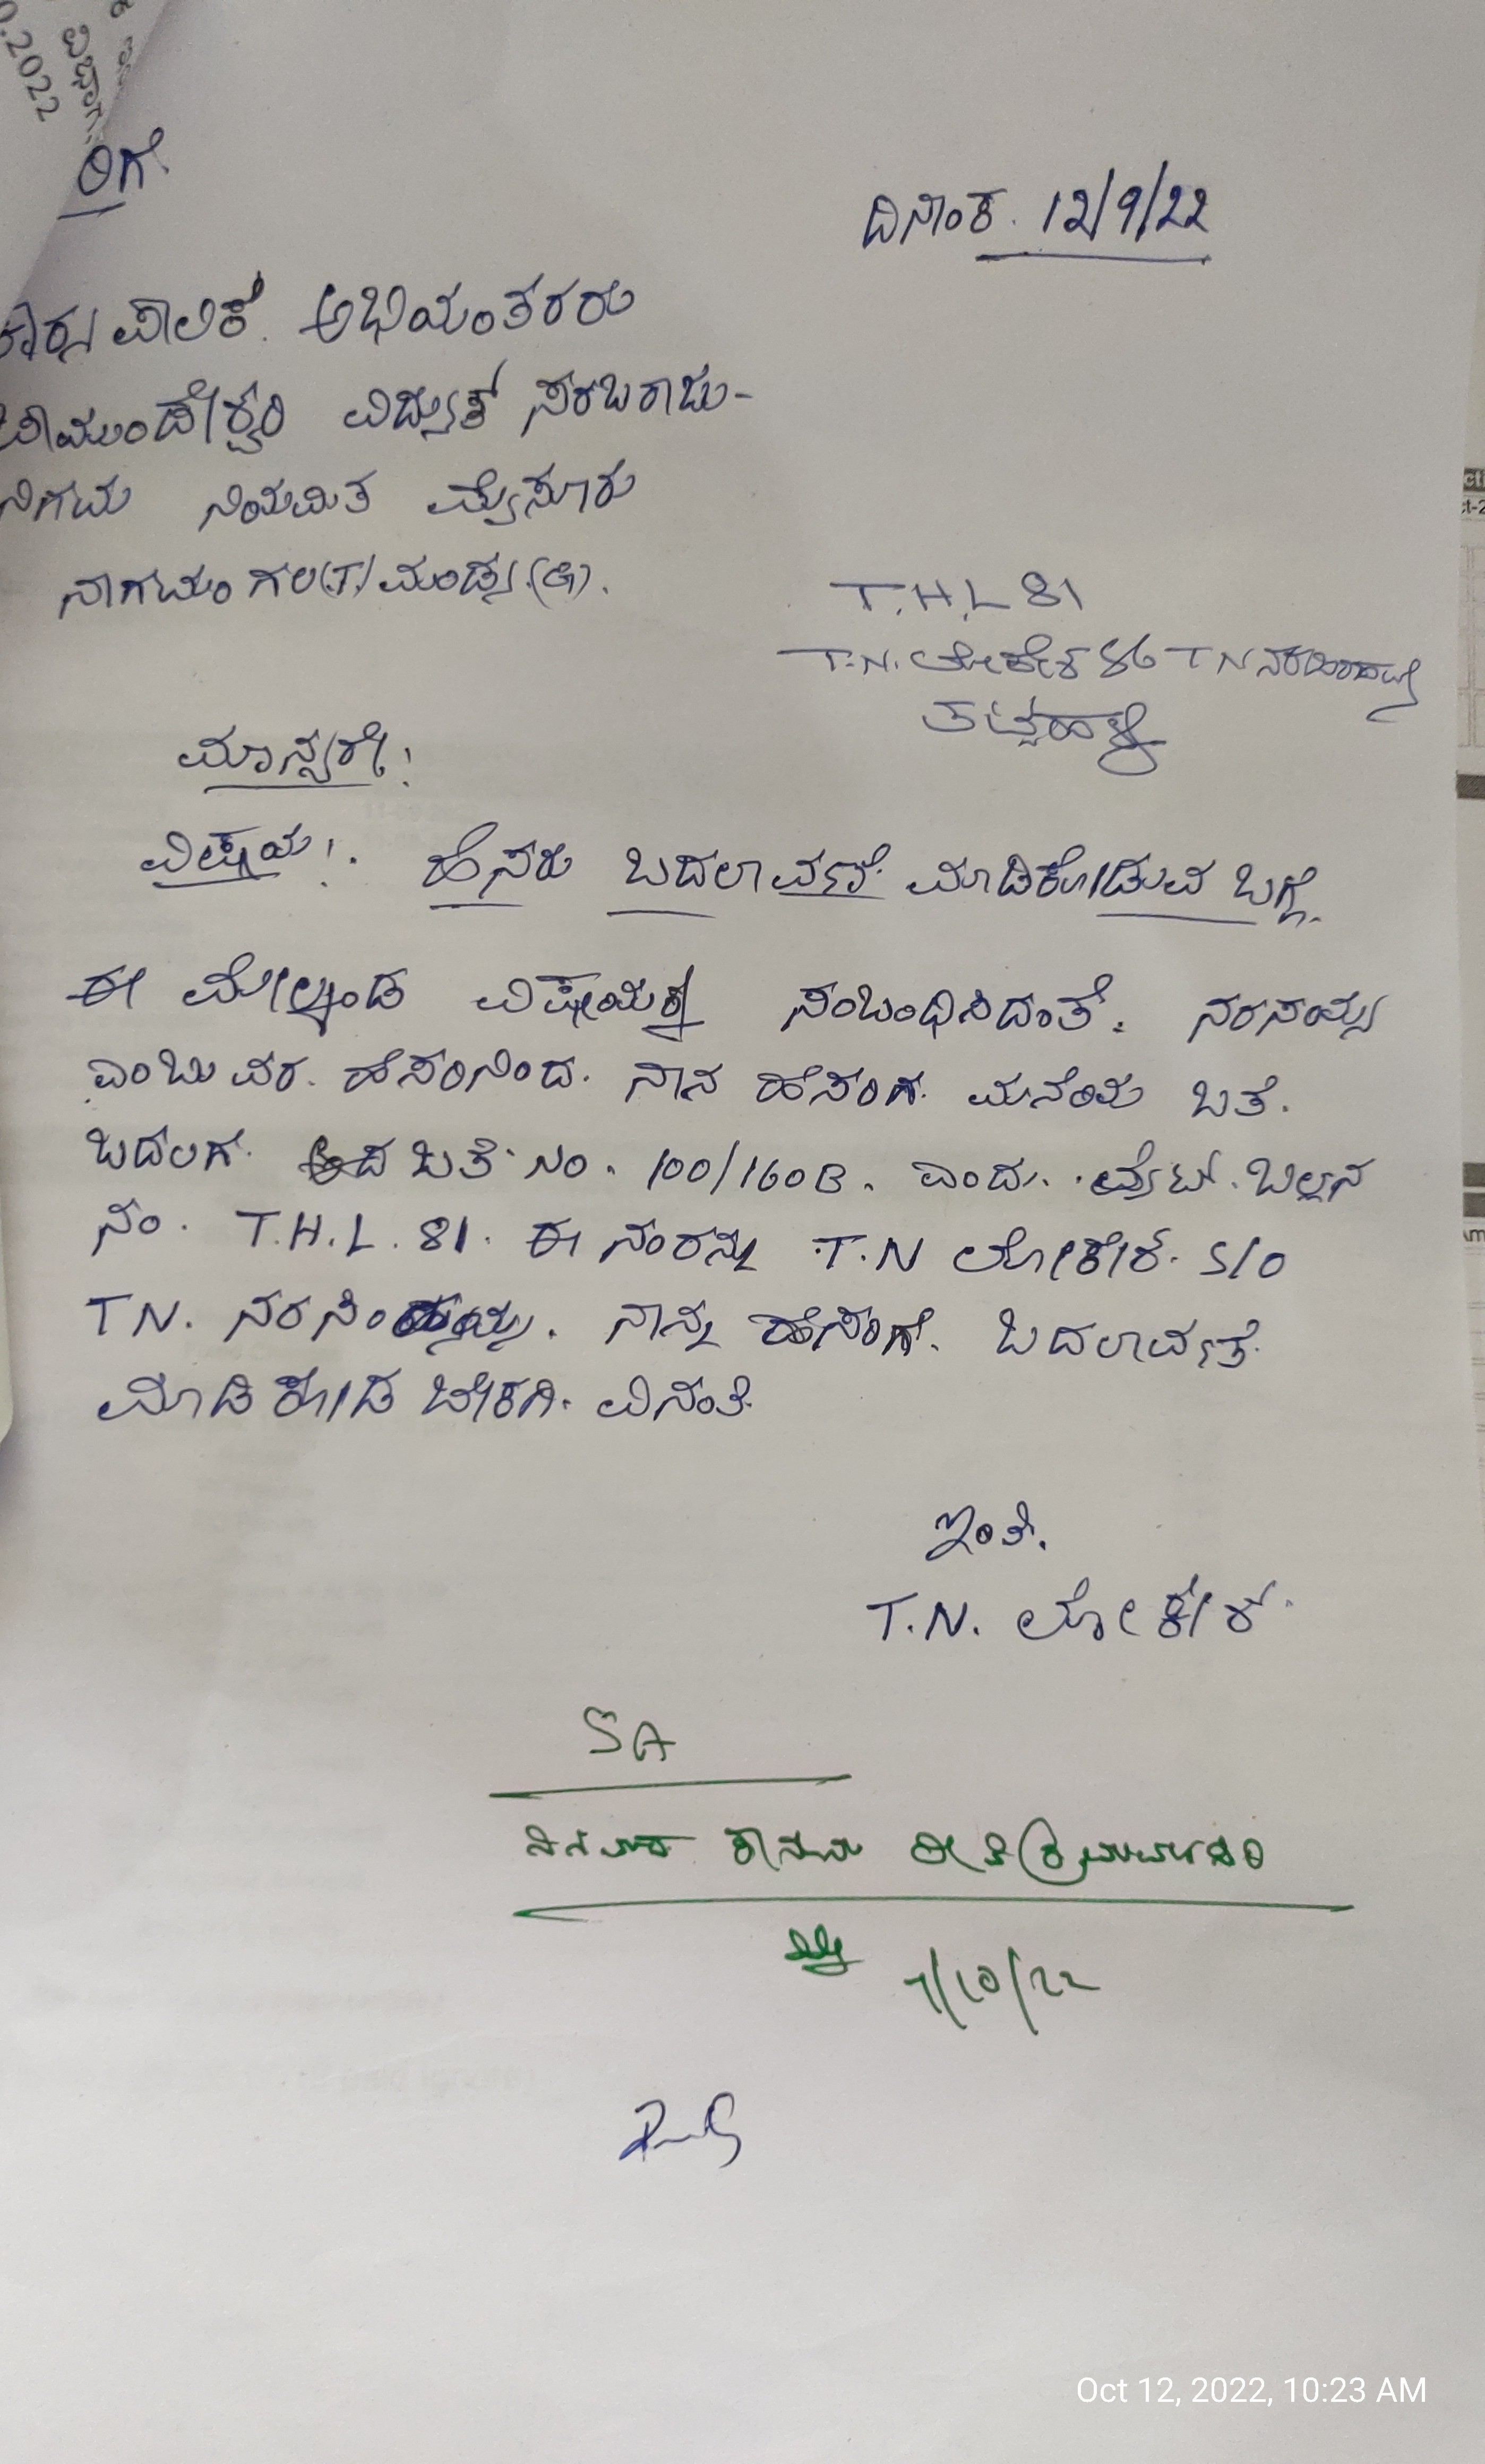 0.2022
ರಿಗೆ.
ದಿನಾಂಕ. 12/9/22
ಕಾರ್ಯಪಾಲಿಕೆ. ಅಭಿಯಂತರರು
ಚಾಮುಂಡೇಶ್ವರಿ ವಿದ್ಯುತ್ ಸರಬರಾಜು-
ನಿಗಮ ನಿಯಮಿತ ಮೈಸೂರು
ನಾಗಮಂಗಲ(T) ಮಂಡ್ಯ.(ಜಿ).
T.H.L 81
T.N. ಲೋಕೇಶ S/o TN
ಮಾನ್ಯರೇ:
ವಿಷಯ:. ಹೆಸರು ಬದಲಾವಣೆ ಮಾಡಿಕೊಡುವ ಬಗ್ಗೆ.
ಈ ಮೇಲ್ಕಂಡ ವಿಷಯಕ್ಕೆ ಸಂಬಂಧಿಸಿದಂತೆ. ನರಸಯ್ಯ
ಎಂಬುವರ. ಹೆಸರಿನಿಂದ. ನಾನ ಹೆಸರಿಗೆ. ಮನೆಯ ಖತೆ.
ಬದಲಗಿ. ಖತೆ ನಂ. 100/160B. ಎಂದು. ಬಿಲ್ಲನ
ನಂ. T.H.L. 81. ಈ ನಂರನ್ನು T.N ಲೋಕೇಶ. S/O
TN. ನರಸಿಂಹಯ್ಯ. ನಾನ್ನ ಹೆಸರಿಗೆ. ಬದಲಾವಣೆ
ಮಾಡಿ ಕೊಡ ಬೇಕಗಿ. ವಿನಂತಿ.
ಇಂತಿ.
T.N. ಲೋಕೇಶ.
SA
7/10/22
Oct 12, 2022, 10:23 AM